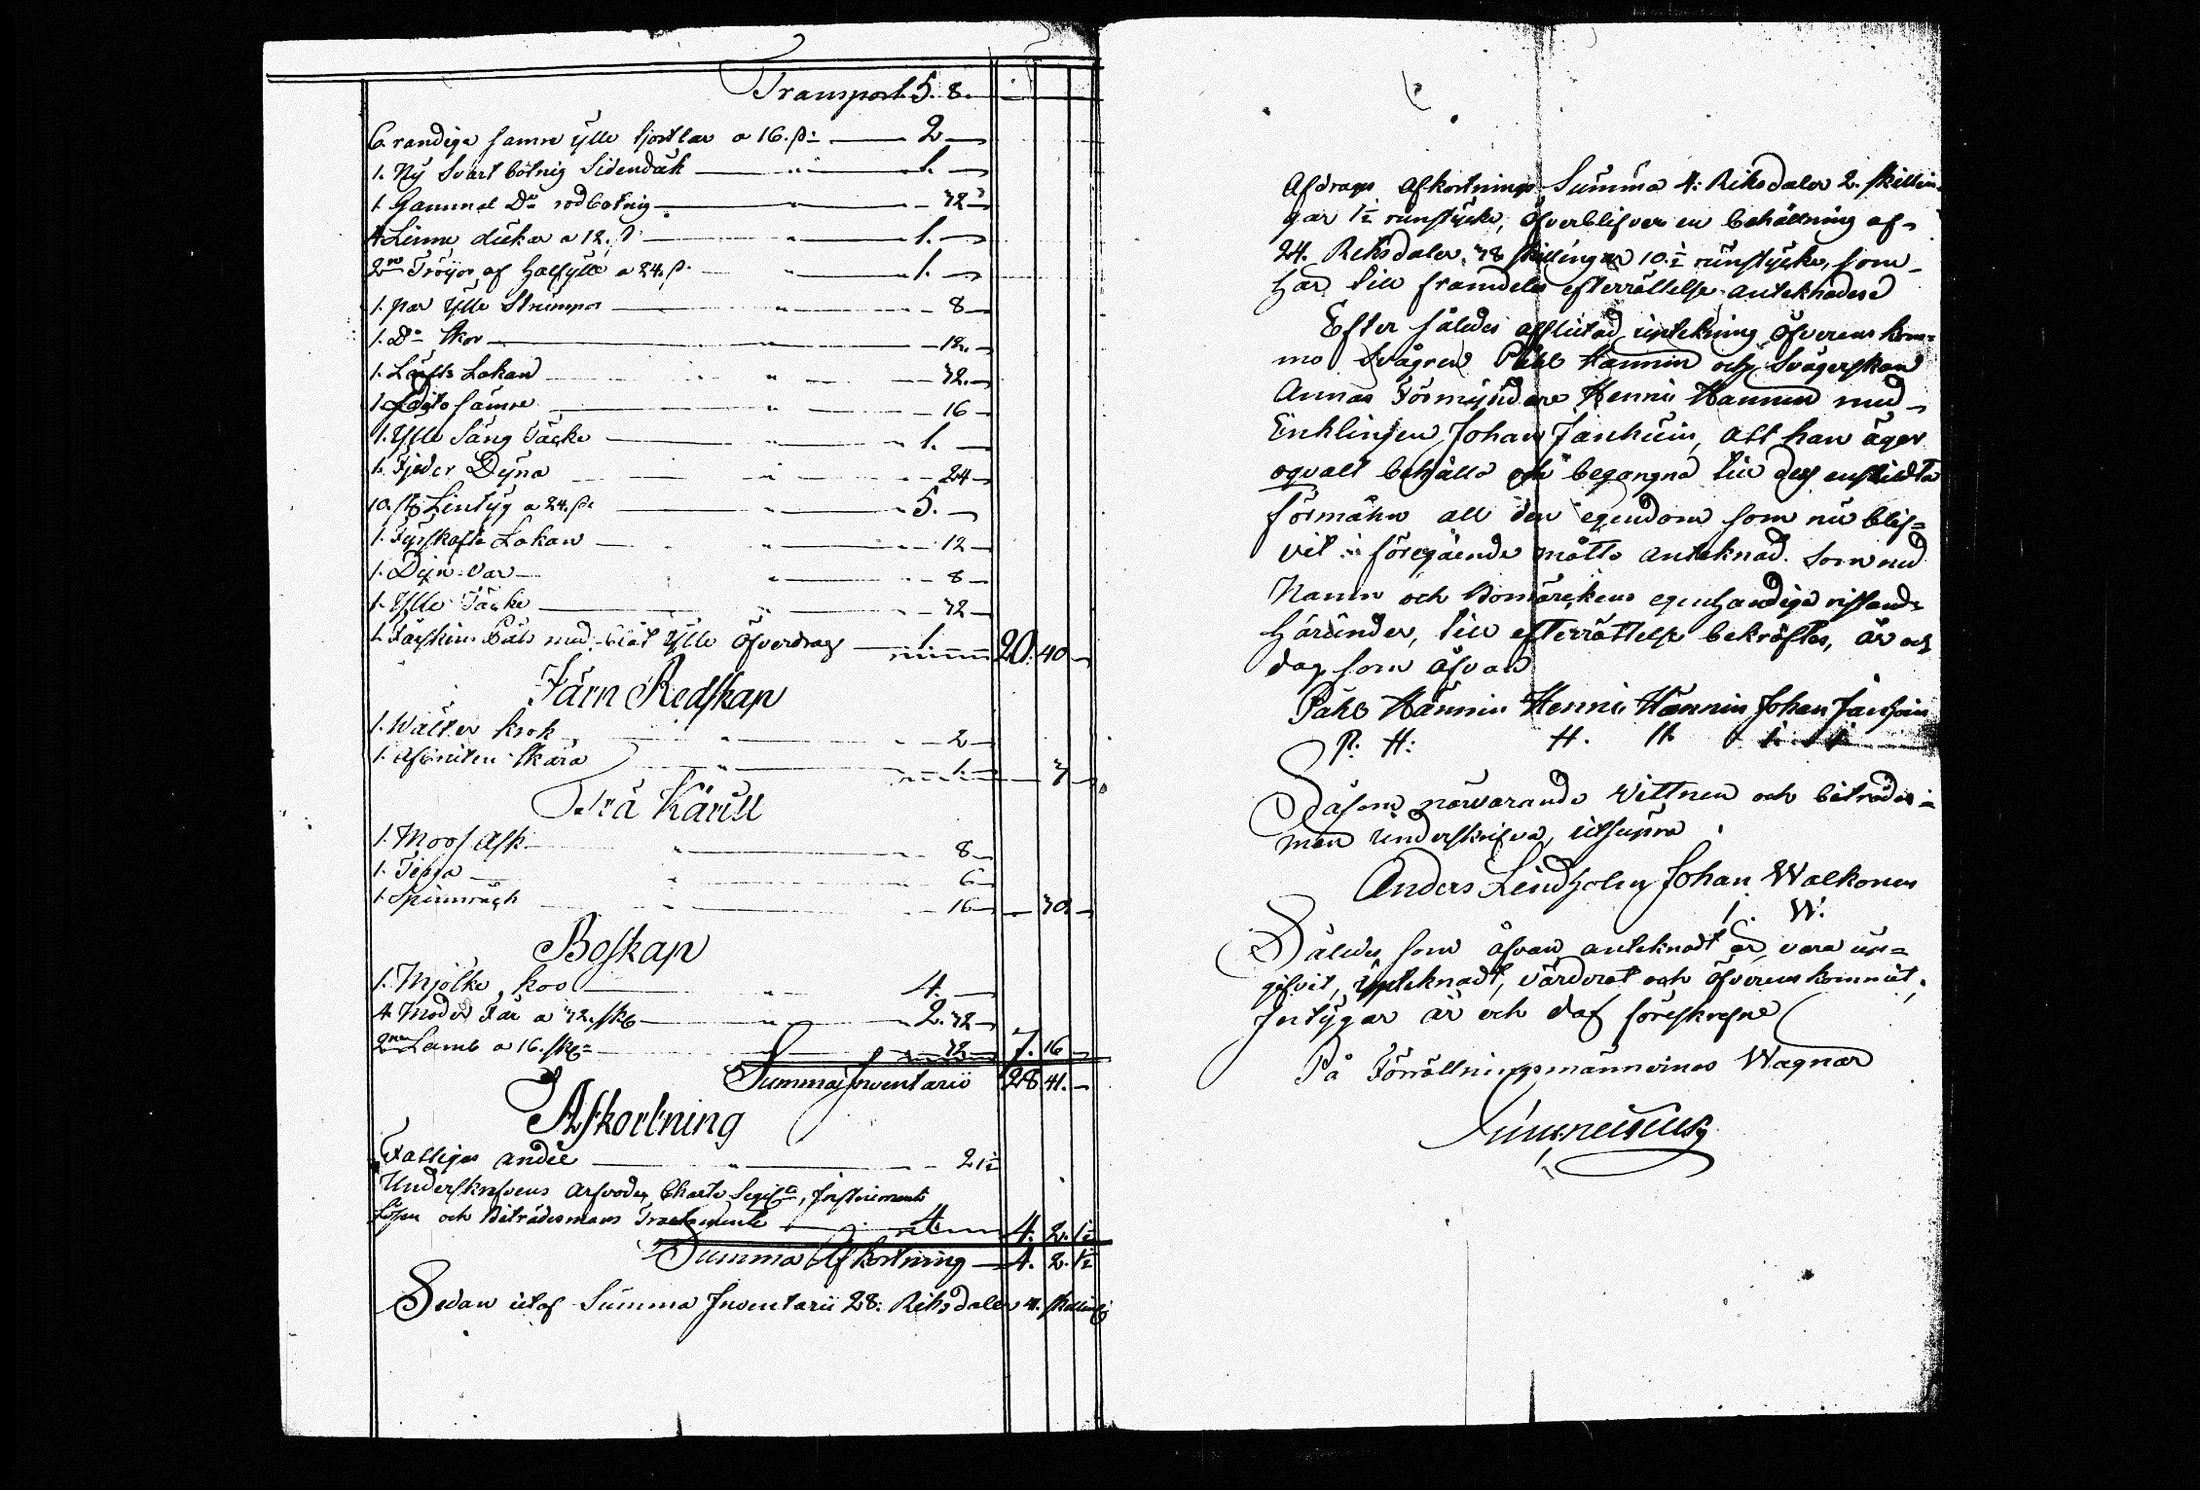 Transport 5. 8.
6. randige sämre ylle kjortlar a 16. ß: 2
1. Ny Svart botnig Sidenduk 1.
1. Gammal Do rödbotnig 32
4 Linne dukar a 12. ß 1.
2ne Tröyor af Halfylle a 24. ß. 1.
1. par Ylle Strumpor 8
1. Do Skor 12.
1. Lärfts Lakan 32.
1. Dito Sämre 16
1. Ylle Säng Täcke 1.
1. Fjeder Dyna 24
10. st. Lintyg a 24. ß. 5.
1. Fyrskafts Lakan 12
1. Dyn-Var 8
1. Ylle Täcke 32
1. Fårskins Päls med blåt Ylle Öfverdrag 1. 20. 40
Järn Redskap
1. Wälter krok 2
1. Afsniten Skära 1. 3
Trä Käríll
1. Moos Ask 8
1. Tiggja 6
1. Spinnråck 16 30
Boskap
1. Mjölke koo 4.
4 Moder Får a 32. sk. 2. 32
2ne Lamb a 16. sk. 32 7. 16
Summa Inventarii 28 41.
Afkortning
Fattigas andel 2 1½
Underskrefvens Arfvode, Charta Sigill., Instruments
Lösen och Biträdesmans Tractamente 4. 4. 2. 1½
Summa Afkortning 4. 2. 1½
Sedan utaf Summa Inventarii 28: Riksdaler 41. skillingar
Afdrages Afkortnings Summa 4: Riksdaler 2. skillin-
gar 1½ runstycke, öfverblifver en behållning af
24. Riksdaler, 38 skillingar 10.½ runstycke, som
här till framdeles efterrättelse antecknades
Efter således afslutad upteckning öfverenskom-
mo Svågren Påhl Hännin och Svägerskan
Annas Förmyndare Henric Hännin med
Enklingen Johan Janhuin, att han äger
oqvalt behålla och begangna till dess enskildta
förmåhn all den egendom som nu blif-
vit i föregående måtto antecknad. Som med
Namn och Bomärckens egenhändiga ristande
härunder, till efterrättelse bekräftes, år och
dag som ofvan
Påhl Hännin Henric Hännin Johan Janhuin
P. H: H. H. I. I.
Såsom närvarande Wittnen och biträdes-
män underskrifva, utsupra
Anders Lindholm Johan Walkonen
I. W.
Således som ofvan antecknadt är, vara up-
gifvit, uptecknadt, värderat och öfverenskommit,
Intygar år och dag föreskrefne
På Förrättningsmännernes Wagnar